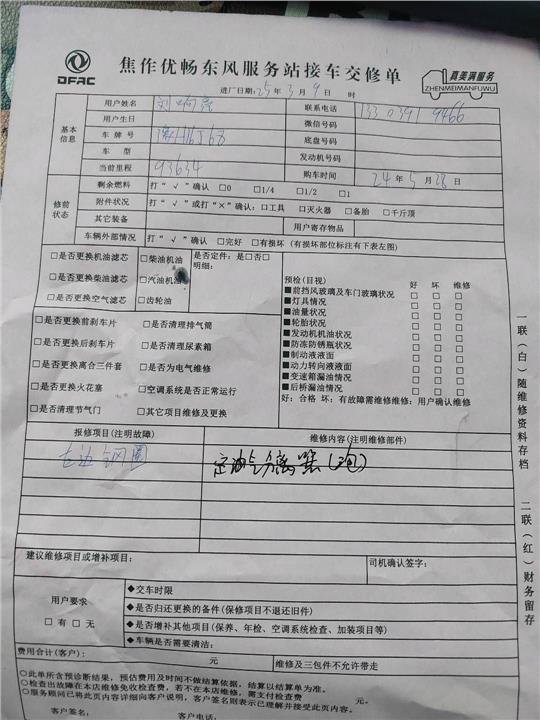 DFAC
焦作优畅东风服务站接车交修单
真美满服务
ZHENMEIMANFUWU
进厂日期:25年3月9日 时
基本信息
用户姓名 刘 联系电话
用户生日 微信号码
车牌号 底盘号码
车型 发动机号码
当前里程 93634 购车时间 24年5月28日
修前状态
剩余燃料 打“√”确认 □0 □1/4 □1/2 □1
附件状况 打“√”或打“×”确认:□工具 □灭火器 □备胎 □千斤顶
其它装备 用户寄存物品
车辆外部情况 打“√”确认 □完好 □有损坏 (有损坏部位标注有下表左图)
□是否更换机油滤芯 □柴油机油 是否定件:是□否□
□是否更换柴油滤芯 □汽油机油 明细:
□是否更换空气滤芯 □齿轮油
预检(目视) 好 坏 维修
■前挡风玻璃及车门玻璃状况 □ □ □
■灯具情况 □ □ □
■油量状况 □ □ □
■轮胎状况 □ □ □
■发动机机油状况 □ □ □
■防冻防锈瓶状况 □ □ □
■制动液液面 □ □ □
■动力转向液液面 □ □ □
■变速箱漏油情况 □ □ □
■后桥漏油情况 □ □ □
好:合格 坏:有故障需维修维修:用户确认维修
□是否更换前刹车片 □是否清理排气筒
□是否更换后刹车片 □是否清理尿素箱
□是否更换离合三件套 □是否为电气维修
□是否更换火花塞 □空调系统是否正常运行
□是否清理节气门 □其它项目维修及更换
报修项目(注明故障) 维修内容(注明维修部件)
左边钢圈 油分离器
建议维修项目或增补项目: 司机确认签字:
用户要求
□有 □无
◆交车时限
◆是否归还更换的备件(保修项目不退还旧件)
◆是否增补其他项目(保养、年检、空调系统检查、加装项目等)
◆车辆是否需要清洁:
费用合计(客户): 元 维修及三包件不允许带走
○此单所含预诊断结果,预估费用及时间不做结算依据,结算以结算单为准。
○检查出故障在本店维修免收检查费,若不在本店维修,需支付检查费 元
○服务顾问已将此页内容详细向客户说明,客户签名则表示已理解并接受此页内容。
客户签名: 客户电话:
一联(白)随维修资料存档
二联(红)财务留存